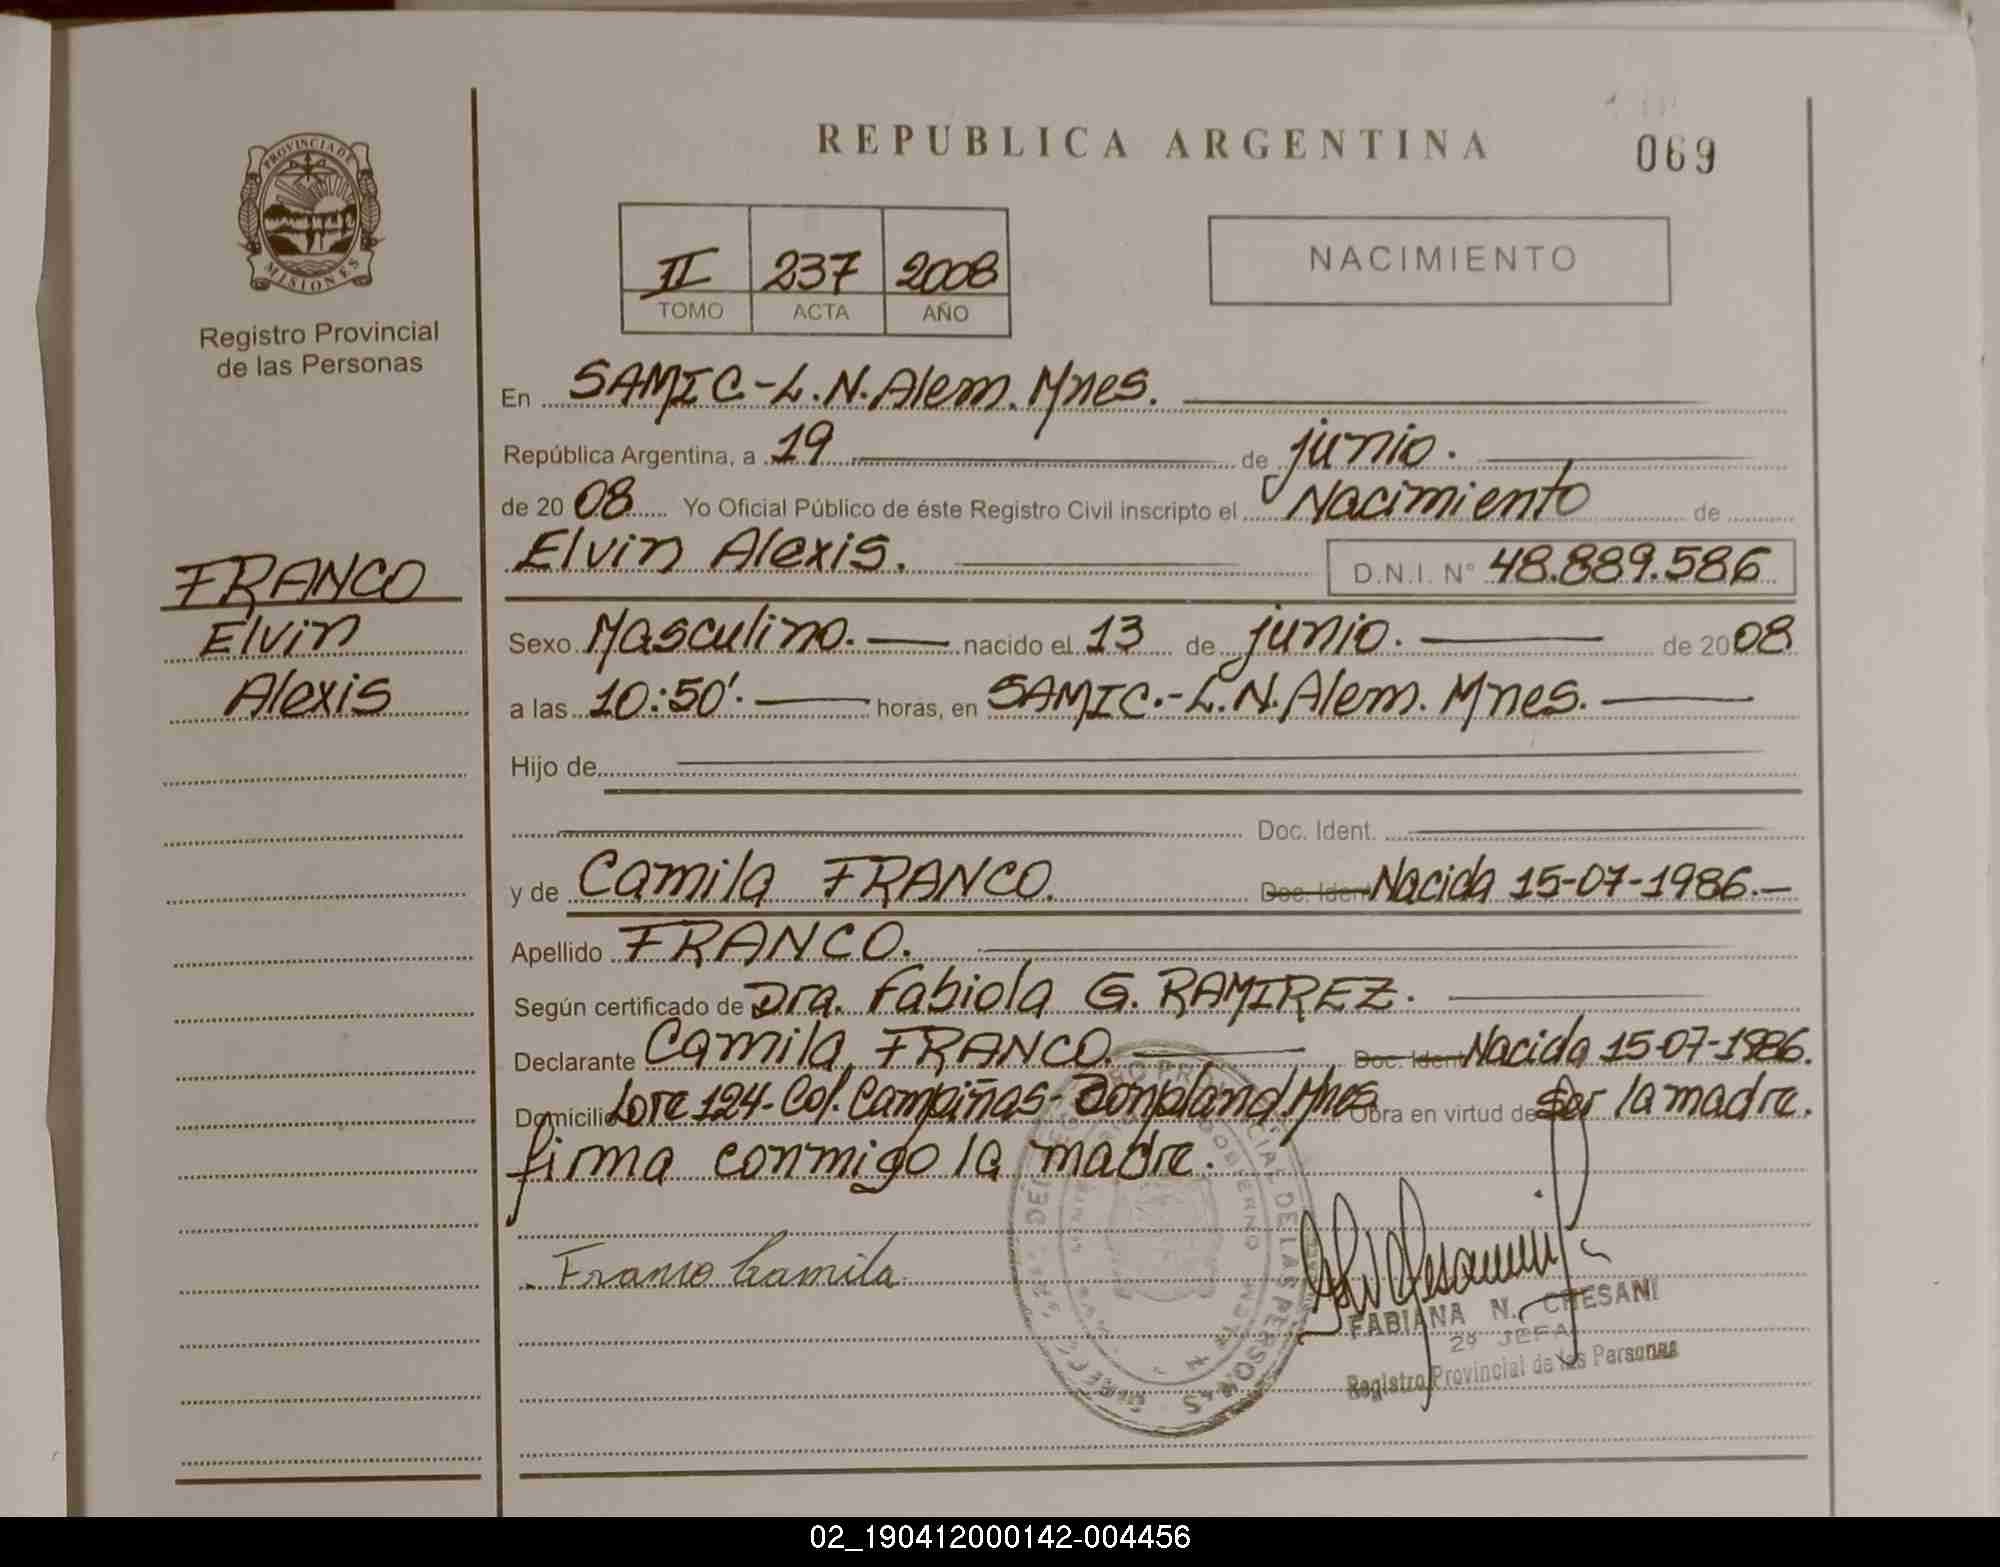 REPUBLICA ARGENTINA
069
PROVINCIA DE
MISIONES
Registro Provincial
de las Personas
II 237 2008
TOMO ACTA AÑO
NACIMIENTO
En SAMIC-L.N.Alem. Mnes.
República Argentina, a 19 de junio.
de 2008 Yo Oficial Público de éste Registro Civil inscripto el Nacimiento de
FRANCO
Elvin
Alexis
Elvin Alexis. D.N.I. N° 48.889.586
Sexo Masculino. nacido el 13 de junio. de 2008
a las 10:50'. horas, en SAMIC.-L.N.Alem. Mnes.
Hijo de
Doc. Ident.
y de Camila FRANCO. Doc. Ident Nacida 15-07-1986.
Apellido FRANCO.
Según certificado de Dra. Fabiola G. RAMIREZ.
Declarante Camila FRANCO. Doc. Ident Nacida 15-07-1986.
Domicilio Lote 124-Col. Campiñas-Bonpland. Mnes Obra en virtud de Ser la madre.
firma conmigo la madre.
Franco Camila
FABIANA N. CHESANI
2º JEFA
Registro Provincial de las Personas
PROVINCIAL DE LAS PERSONAS
GOBIERNO
02_190412000142-004456